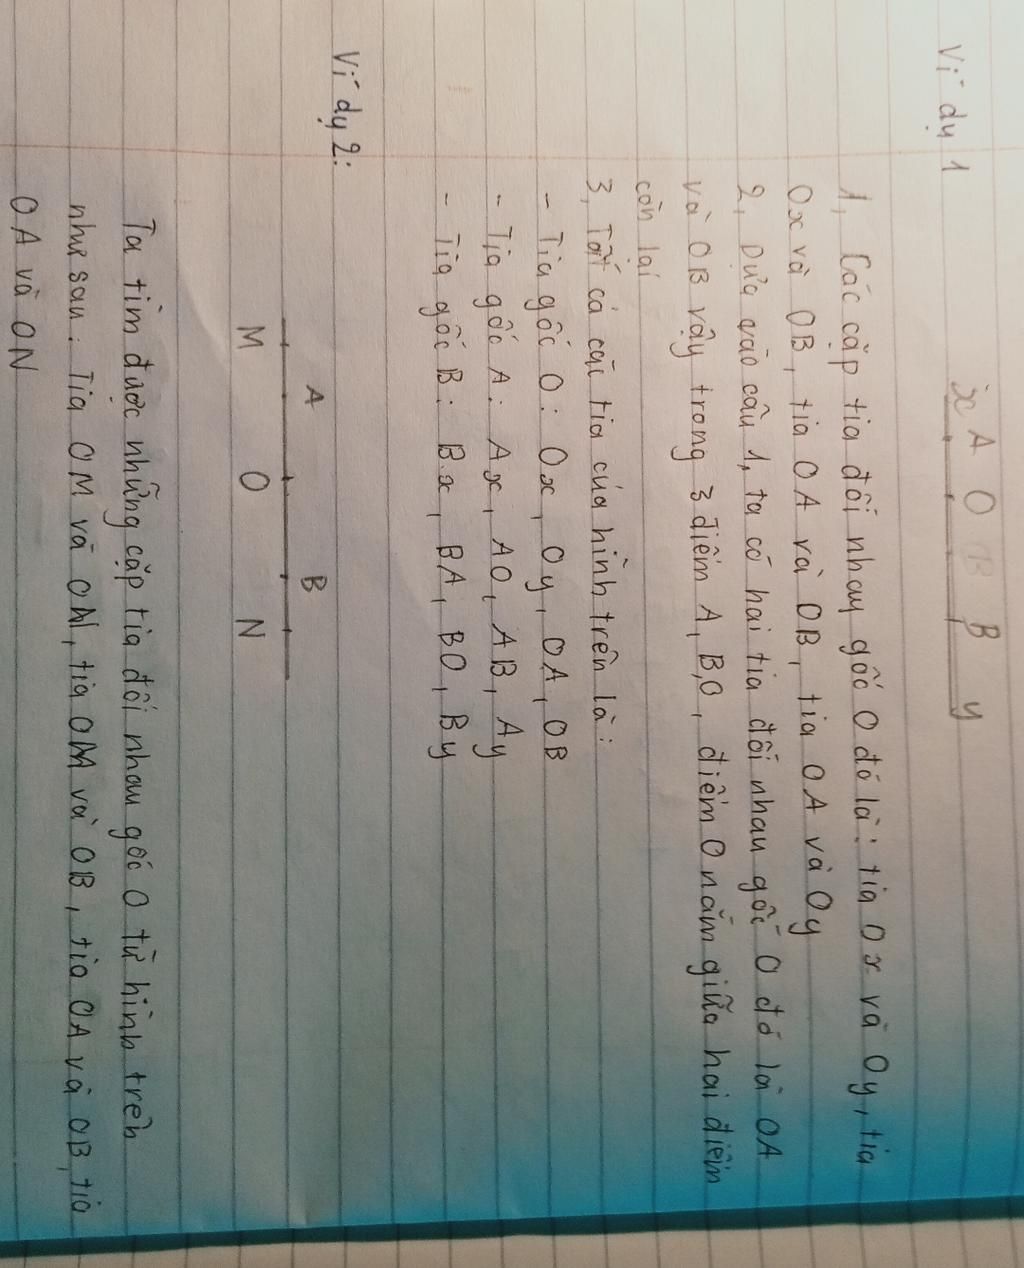 Ví dụ 1
x A O B B y
1, Các cặp tia đối nhau gốc O đó là: tia Ox và Oy, tia
Ox và OB, tia OA và OB, tia OA và Oy
2, Dựa vào câu 1, ta có hai tia đối nhau gốc O đó là OA
và OB vậy trong 3 điểm A, B, O, điểm O nằm giữa hai điểm
còn lại
3, Tất cả các tia của hình trên là:
- Tia gốc O: Ox, Oy, OA, OB
- Tia gốc A: Ax, AO, AB, Ay
- Tia gốc B: Bx, BA, BO, By
Ví dụ 2:
A B
M O N
Ta tìm được những cặp tia đối nhau gốc O từ hình trên
như sau: Tia OM và ON, tia OM và OB, tia OA và OB, tia
OA và ON